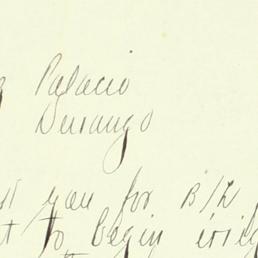 Palacio
Durango
you for B/L
to begin